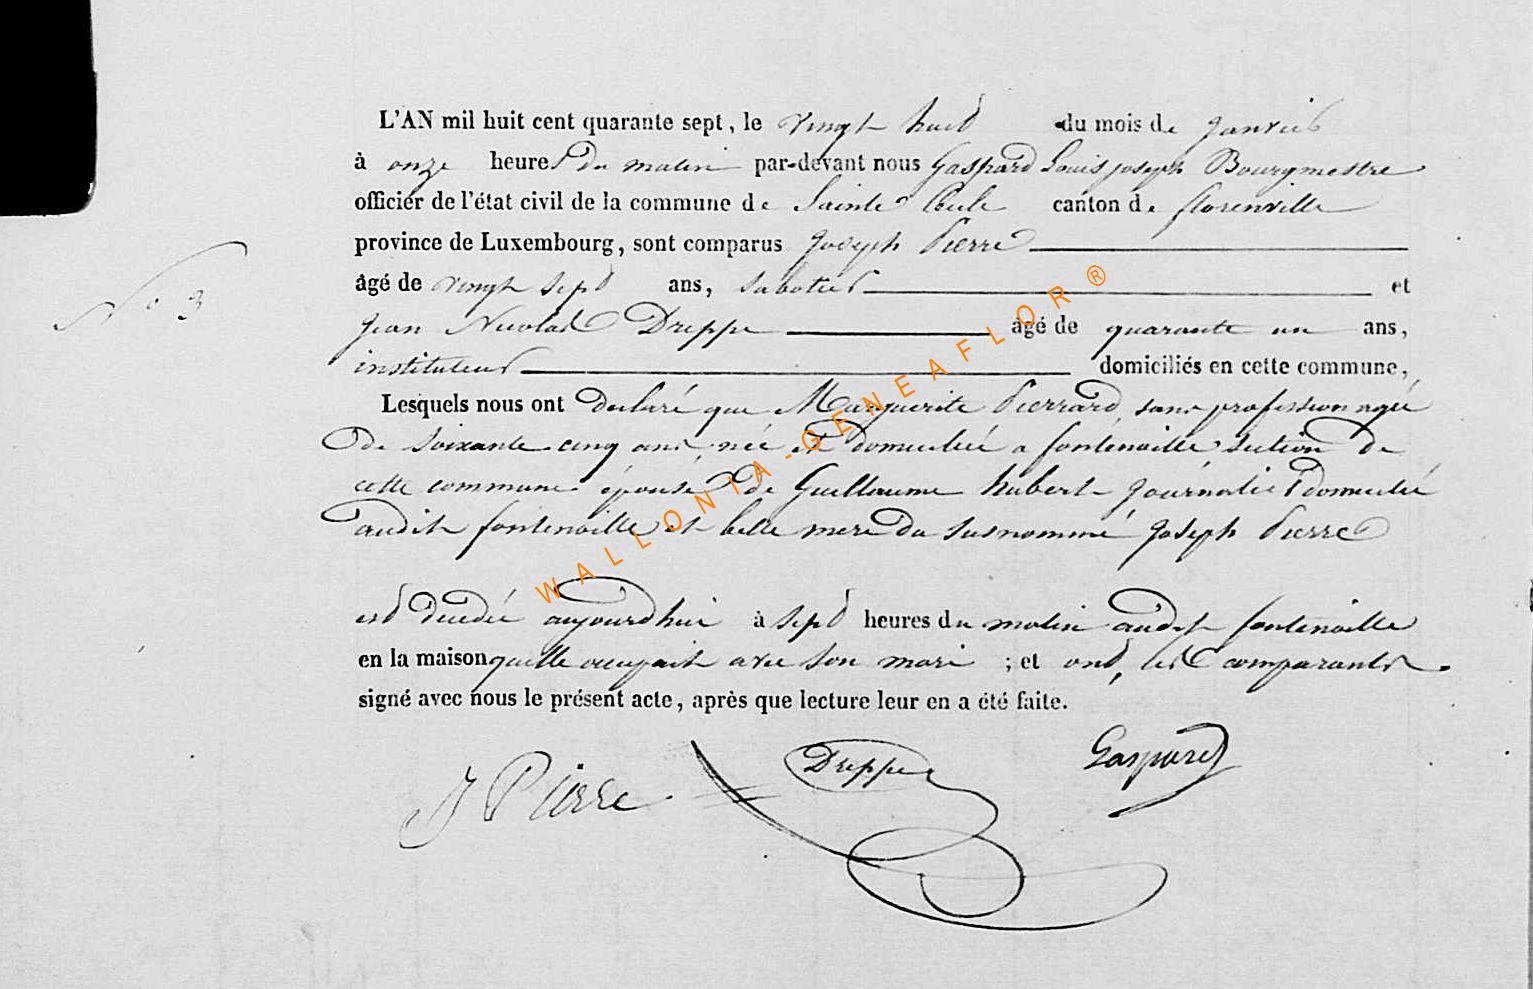 L'AN mil huit cent quarante sept, le vingt huit du mois de janvier
à onze heures du matin par-devant nous Gaspard Louis joseph Bourgmestre
officier de l'état civil de la commune de Sainte Cecile canton de florenville
province de Luxembourg, sont comparus Joseph Pierre
N° 3
âgé de vingt sept ans, sabotier et
Jean Nicolas Dreppe âgé de quarante un ans,
instituteur domiciliés en cette commune,
Lesquels nous ont declaré que Marguerite Pierrard, sans profession agée
de soixante cinq ans, née et domiciliée a fontenoille section de
cette commune épouse de Guillaume hubert journalier domicilié
audit fontenoille et belle mere du susnommé Joseph Pierre
est decedée aujourdhui à sept heures du matin audit fontenoille
en la maison quelle occupait avec son mari ; et ont, les comparants
signé avec nous le présent acte, après que lecture leur en a été faite.
J Pierre Dreppe Gaspard
WALLONIA-GENEAFLOR®